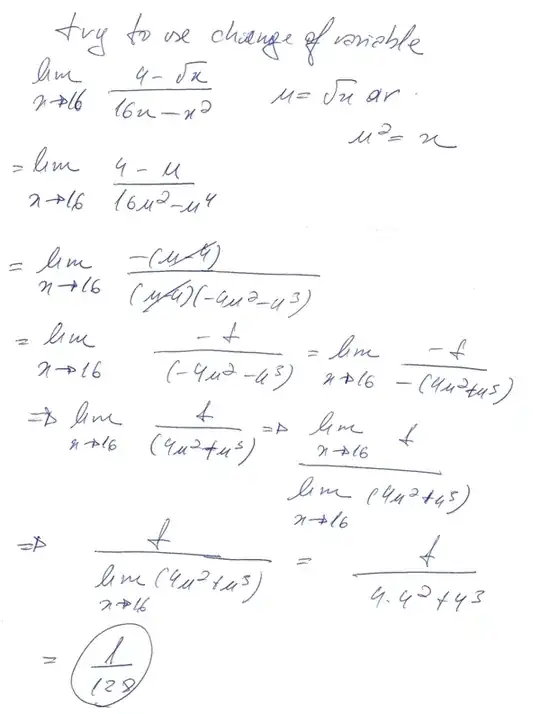 try to use change of variable
lim x→16 (4 - √x)/(16x - x²) u = √x or
u² = x
= lim x→16 (4 - u)/(16u² - u⁴)
= lim x→16 -(u-4)/((u-4)(-4u² - u³))
= lim x→16 -1/(-4u² - u³) = lim x→16 -1/-(4u² + u³)
⇒ lim x→16 1/(4u² + u³) ⇒ lim x→16 1 / lim x→16 (4u² + u³)
⇒ 1/lim x→16 (4u² + u³) = 1/(4·4² + 4³)
= 1/128